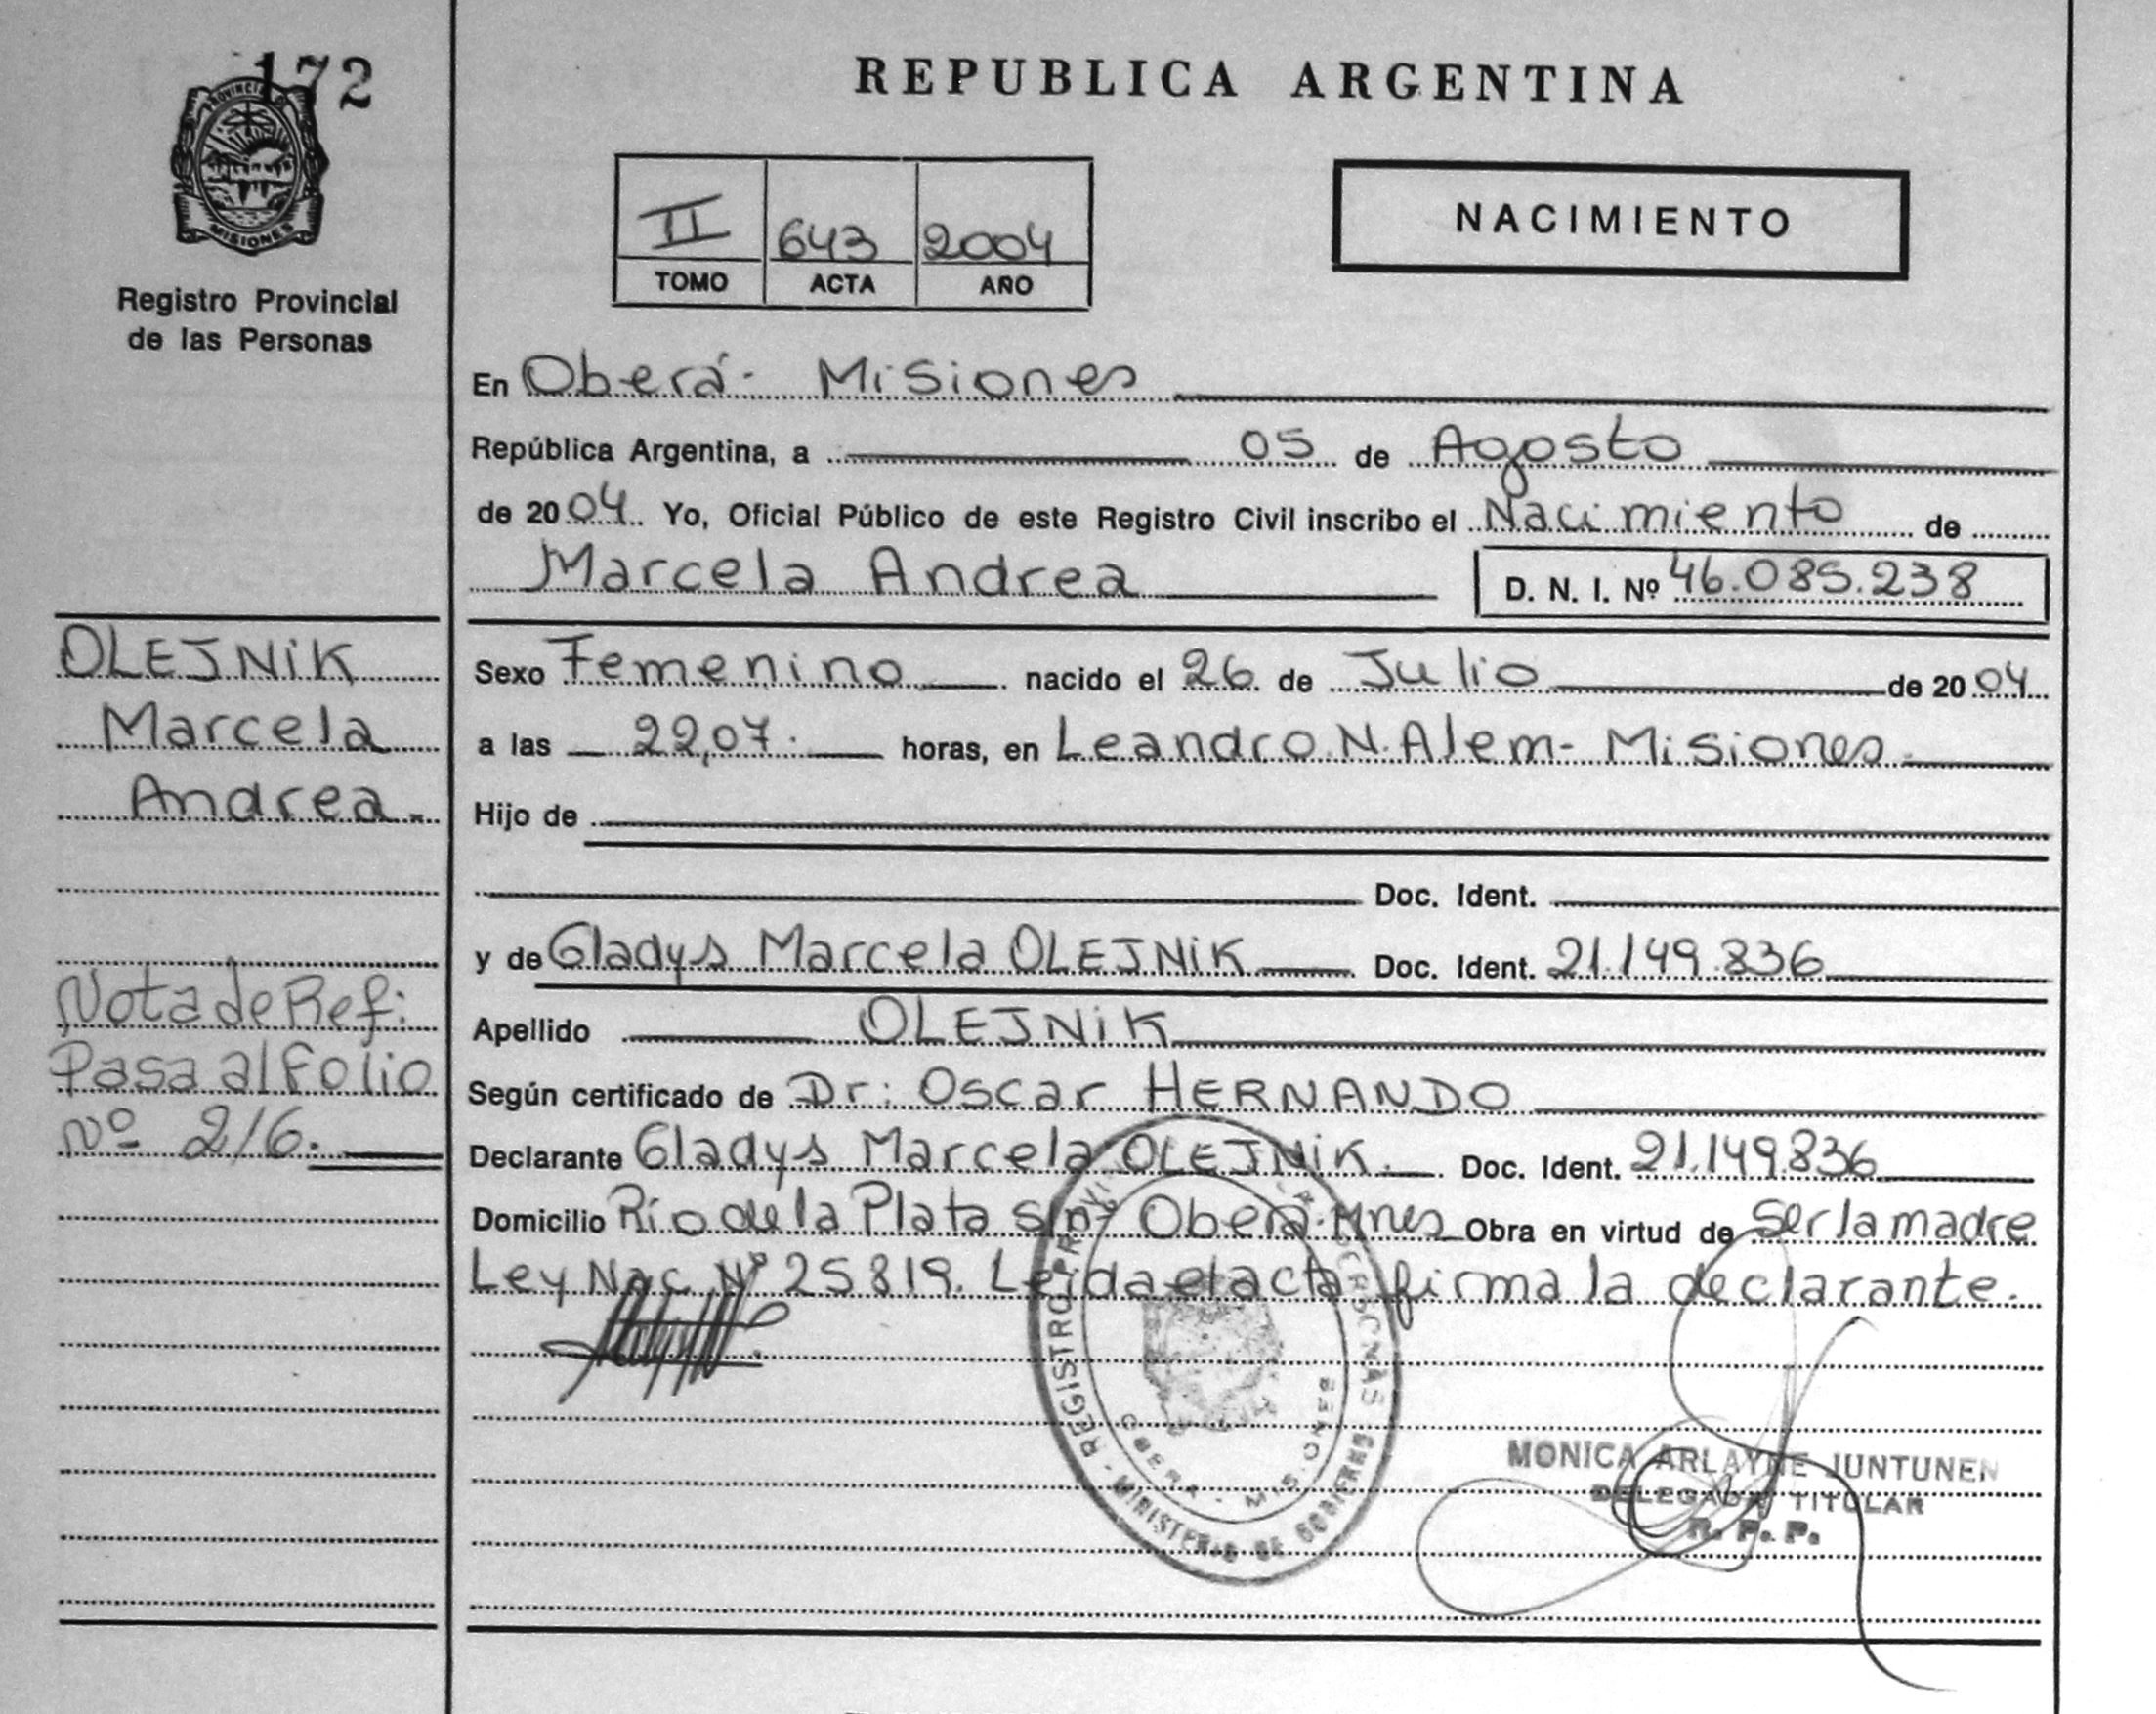 172
PROVINCIA DE
MISIONES
Registro Provincial
de las Personas
OLEJNiK
Marcela
Andrea.
Nota de Ref:
Pasa al Folio
Nº 216.
REPUBLICA ARGENTINA
II 643 2004
TOMO ACTA AÑO
NACIMIENTO
En Oberá- Misiones
República Argentina, a 05 de Agosto
de 2004. Yo, Oficial Público de este Registro Civil inscribo el Nacimiento de
Marcela Andrea D. N. I. Nº 46.085.238
Sexo Femenino nacido el 26 de Julio de 2004
a las 22,07. horas, en Leandro N. Alem- Misiones.
Hijo de
Doc. Ident.
y de Gladys Marcela OLEJNiK Doc. Ident. 21.149.836
Apellido OLEJNiK
Según certificado de Dr: Oscar HERNANDO
Declarante Gladys Marcela OLEJNiK. Doc. Ident. 21.149.836
Domicilio Río de la Plata s/nº Oberá. Mnes Obra en virtud de ser la madre
Ley Nac Nº 25819. Leída el acta firma la declarante.
REGISTRO PROVI PERSONAS
- MINISTERIO DE GOBIERNO
OBERA - MISIONES
MONICA ARLAYNE JUNTUNEN
DELEGADA TITULAR
R. P. P.